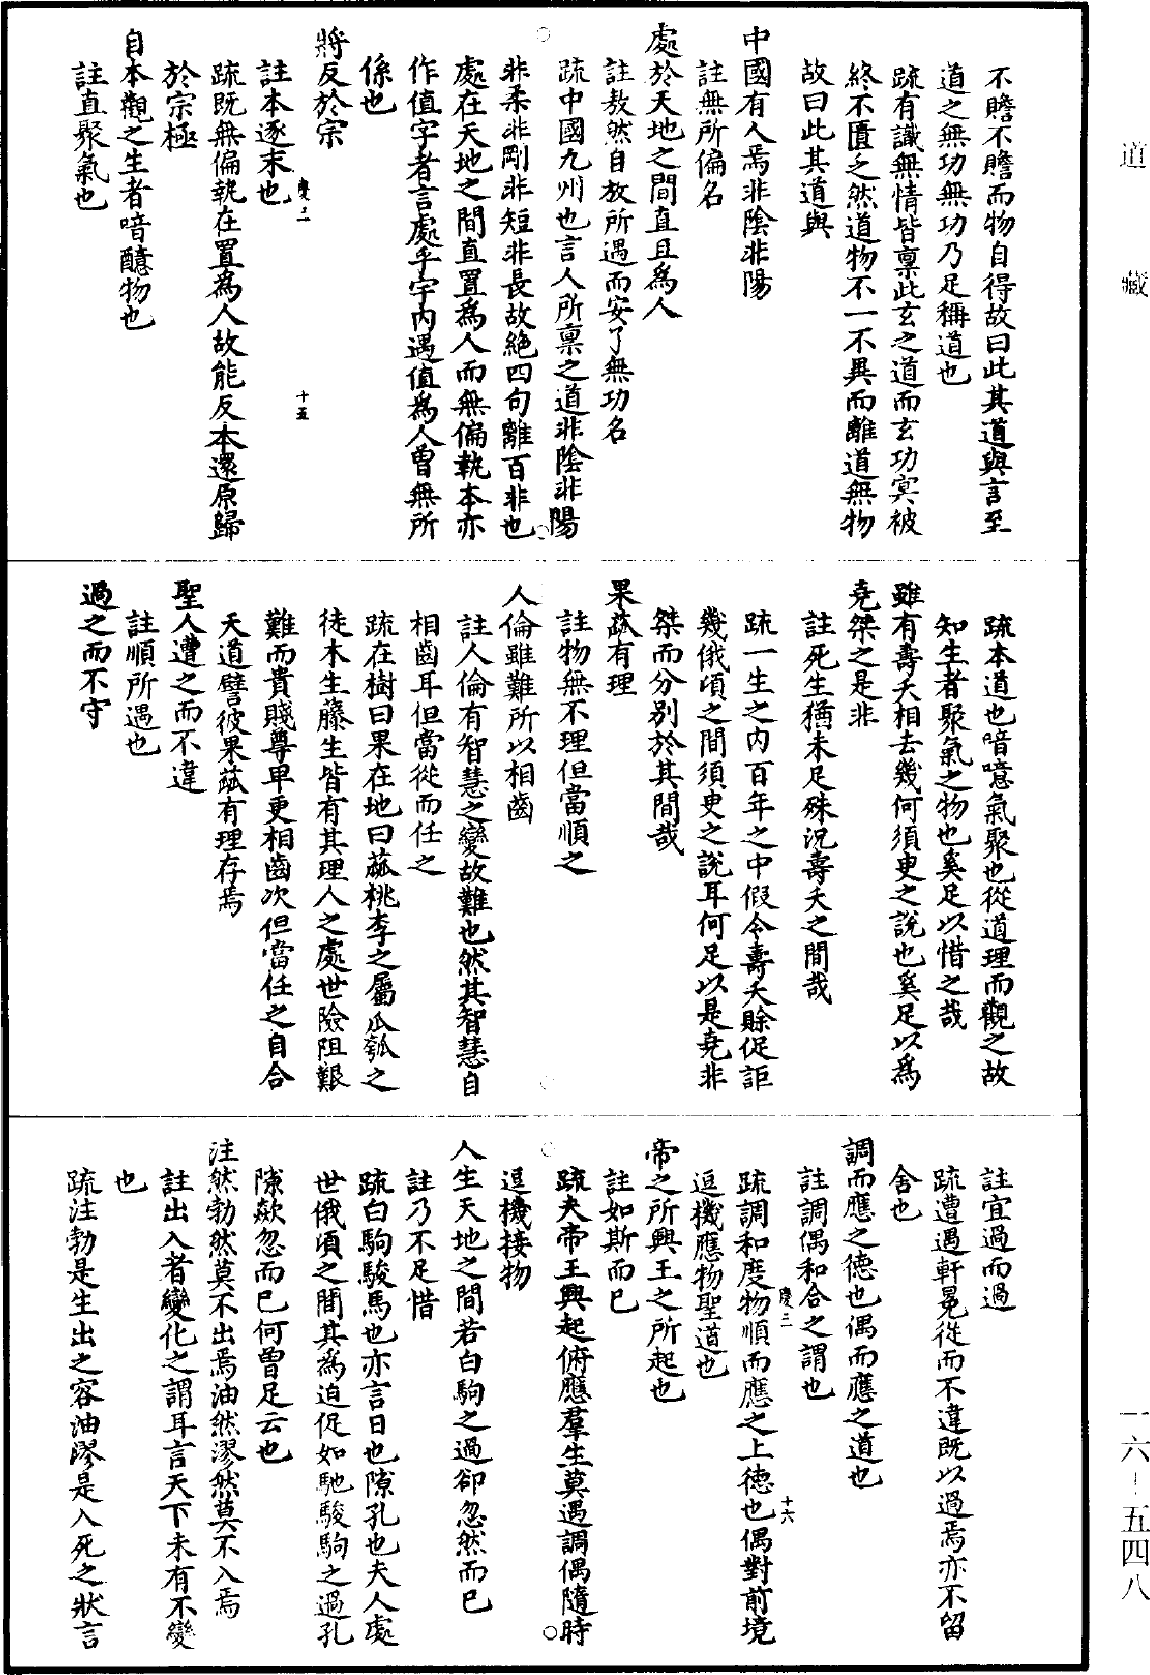 道藏
不贍不贍而物自得故曰此其道與言至
道之無功無功乃足稱道也
疏有識無情皆禀此玄之道而玄功冥被
終不匱乏然道物不一不異而離道無物
故曰此其道與
中國有人焉非陰非陽
註無所偏名
處於天地之間直且為人
註敖然自放所遇而安了無功名
疏中國九州也言人所禀之道非陰非陽
非柔非剛非短非長故絶四句離百非也
處在天地之間直置為人而無偏執本亦
作值字者言處乎宇內遇值為人曾無所
係也
將反於宗
註本逐末也
慶三
十五
疏既無偏執在置為人故能反本還原歸
於宗極
自本觀之生者喑醷物也
註直聚氣也
疏本道也喑噫氣聚也從道理而觀之故
知生者聚氣之物也奚足以惜之哉
雖有壽夭相去幾何須臾之說也奚足以為
堯桀之是非
註死生猶未足殊況壽夭之間哉
疏一生之內百年之中假令壽夭賒促詎
幾俄頃之間須臾之說耳何足以是堯非
桀而分別於其間哉
果蓏有理
註物無不理但當順之
人倫雖難所以相齒
註人倫有智慧之變故難也然其智慧自
相齒耳但當從而任之
疏在樹曰果在地曰蓏桃李之屬瓜瓠之
徒木生藤生皆有其理人之處世險阻艱
難而貴賤尊卑更相齒次但當任之自合
天道譬彼果蓏有理存焉
聖人遭之而不違
註順所遇也
過之而不守
註宜過而過
疏遭遇軒冕從而不違既以過焉亦不留
舍也
調而應之德也偶而應之道也
註調偶和合之謂也
慶三
十六
疏調和庶物順而應之上德也偶對前境
逗機應物聖道也
帝之所興王之所起也
註如斯而已
疏夫帝王興起俯應羣生莫遇調偶隨時
逗機接物
人生天地之間若白駒之過卻忽然而已
註乃不足惜
疏白駒駿馬也亦言日也隙孔也夫人處
世俄頃之間其為迫促如馳駿駒之過孔
隙歘忽而已何曾足云也
注然勃然莫不出焉油然漻然莫不入焉
註出入者變化之謂耳言天下未有不變
也
疏注勃是生出之容油漻是入死之狀言
一六-五四八